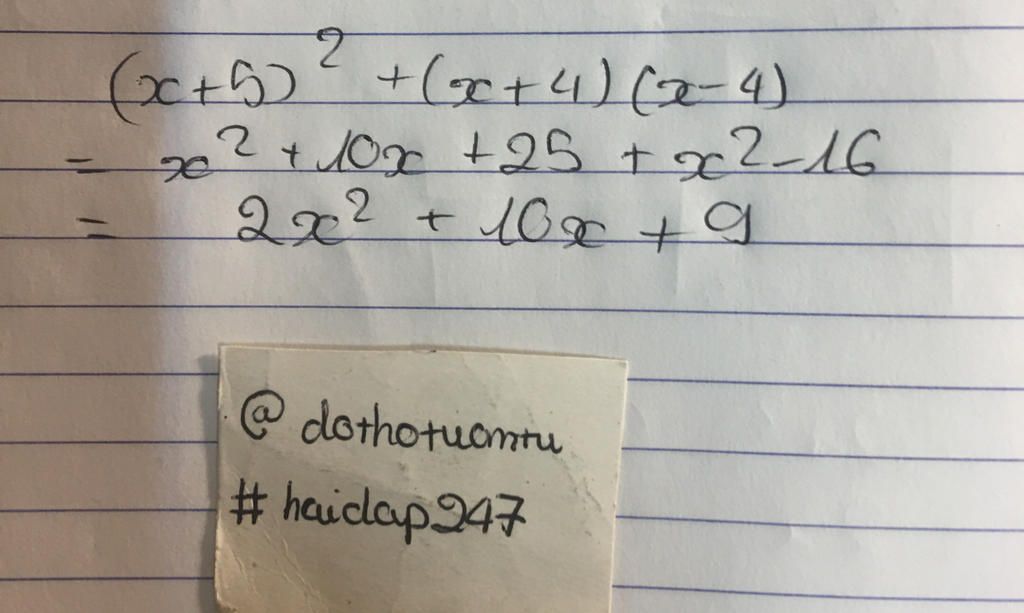 (x+5)² + (x+4)(x-4)
= x² + 10x + 25 + x² - 16
= 2x² + 10x + 9
@ dothotuantu
# haidap247